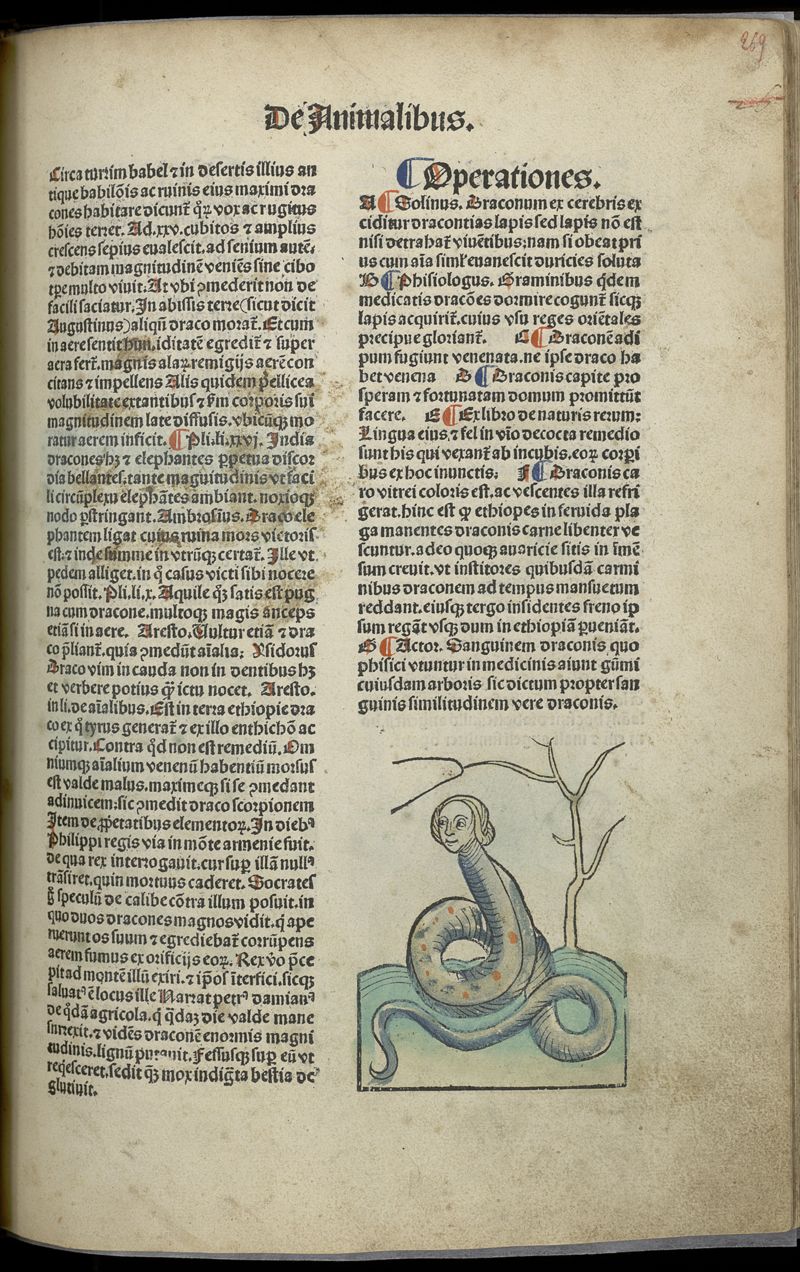 269
De Animalibus.
Circa turrim babel ⁊ in desertis illius an
tique babilōis ac ruinis eius maximi dra
cones habitare dicunt᷑ qꝝ vox ac rugitus
hōies terret. Ad.xxv. cubitos ⁊ amplius
crescens sepius eualescit. ad senium autē,
⁊ debitam magnitudinē veniēs sine cibo
tꝑe multo viuit. At vbi ꝯmederit non de
facili saciatur. In abissis terre (sicut dicit
Augustinus) aliqn̄ draco morat᷑. Et cum
in aere sentit iditatē egredit᷑ ⁊ super
aera fert᷑. magnis alaꝝ remigijs aerē con
citans ⁊ impellens Alis quidem pellicea
volubilitate extantibus ⁊ ẜm corporis sui
magnitudinem late diffusis. vbicūqꝫ mo
ratur aerem inficit. ¶ Pli.li.xxvj. India
dracones hꝫ ⁊ elephantes ꝑpetua discor
dia bellantes. tante magnitudinis vt faci
li circūplexu elephātes ambiant. noxioqꝫ
nodo ꝑstringant. Ambrosius. Draco ele
phantem ligat cuius ruina mors victoris
est. ⁊ inde summe in vtrūqꝫ certat᷑. Ille vt
pedem alliget. in q̊ casus victi sibi nocere
nō possit. Pli.li.x. Aquile qꝫ satis est pug
na cum dracone. multoqꝫ magis anceps
etiā si in aere. Aresto. Vultur etiā ⁊ dra
co p̄liant᷑. quia ꝯmedūt aīalia; Ysidorus
Draco vim in cauda non in dentibus hꝫ
et verbere potius qꝫ ictu nocet. Aresto.
in li. de aīalibus. Est in terra ethiopie dra
co ex q̊ tyrus generat᷑ ⁊ ex illo enthichō ac
cipitur. Contra qd̄ non est remediū. Om
niumqꝫ aīalium venenū habentiū morsus
est valde malus. maximeqꝫ si se ꝯmedant
adinuicem: sic ꝯmedit draco scorpionem
Item de ꝓprietatibus elementoꝝ. In diebꝰ
Philippi regis via in mōte armenie fuit.
de qua rex interrogauit. cur suꝑ illā nullꝰ
trāsiret. quin mortuus caderet. Socrates
ḡ speculū de calibe cōtra illum posuit. in
quo duos dracones magnos vidit. q̇ ape
ruerunt os suum ⁊ egrediebat᷑ corrūpens
aerem fumus ex orificijs eoꝝ. Rex v̊o p̄ce
pit ad montē illū exiri. ⁊ ip̄os īterfici. sicqꝫ
saluatꝰ ē locus ille Narrat petrꝰ damianꝰ
de qdā agricola. q̇ qdaꝫ die valde mane
surrexit. ⁊ vidēs dracone enormis magni
tudinis. lignū putauit. Fessusqꝫ suꝑ eū vt
reqͥesceret. sedit qꝫ mox indigͣta bestia deͥ
glutiuit.
¶ Operationes.
A ¶ Solinus. Draconum ex cerebris ex
ciditur dracontias lapis sed lapis nō est
nisi detrahat᷑ viuētibus: nam si obeat pri
us cum aīa siml̓ euanescit duricies soluta
B ¶ Phisiologus. Graminibus qdem
medicatis dracōes dormire cogunt᷑ sicqꝫ
lapis acquirit᷑. cuius vsu reges oriētales
precipue gloriant᷑. C ¶ Draconē adi
pum fugiunt venenata. ne ipse draco ha
bet venena D ¶ Draconis capite pro
speram ⁊ fortunatam domum promittūt
facere. E ¶ Ex libro de naturis rerum:
Lingua eius. ⁊ fel in vīo decocta remedio
sunt his qui vexant᷑ ab incubis. eoꝝ corꝑi
bus ex hoc inunctis: F ¶ Draconis ca
ro vitrei coloris est. ac vescentes illa refri
gerat. hinc est ꝙ ethiopes in feruida pla
ga manentes draconis carne libenter ve
scuntur. adeo quoqꝫ auaricie sitis in īmē
sum creuit. vt institores quibusdā carmi
nibus draconem ad tempus mansuetum
reddant. eiusqꝫ tergo insidentes freno ip
sum regāt vsqꝫ dum in ethiopiā ꝑueniāt.
G ¶ Actor. Sanguinem draconis quo
phisici vtuntur in medicinis aiunt gūmi
cuiusdam arboris sic dictum propter san
guinis similitudinem vere draconis.